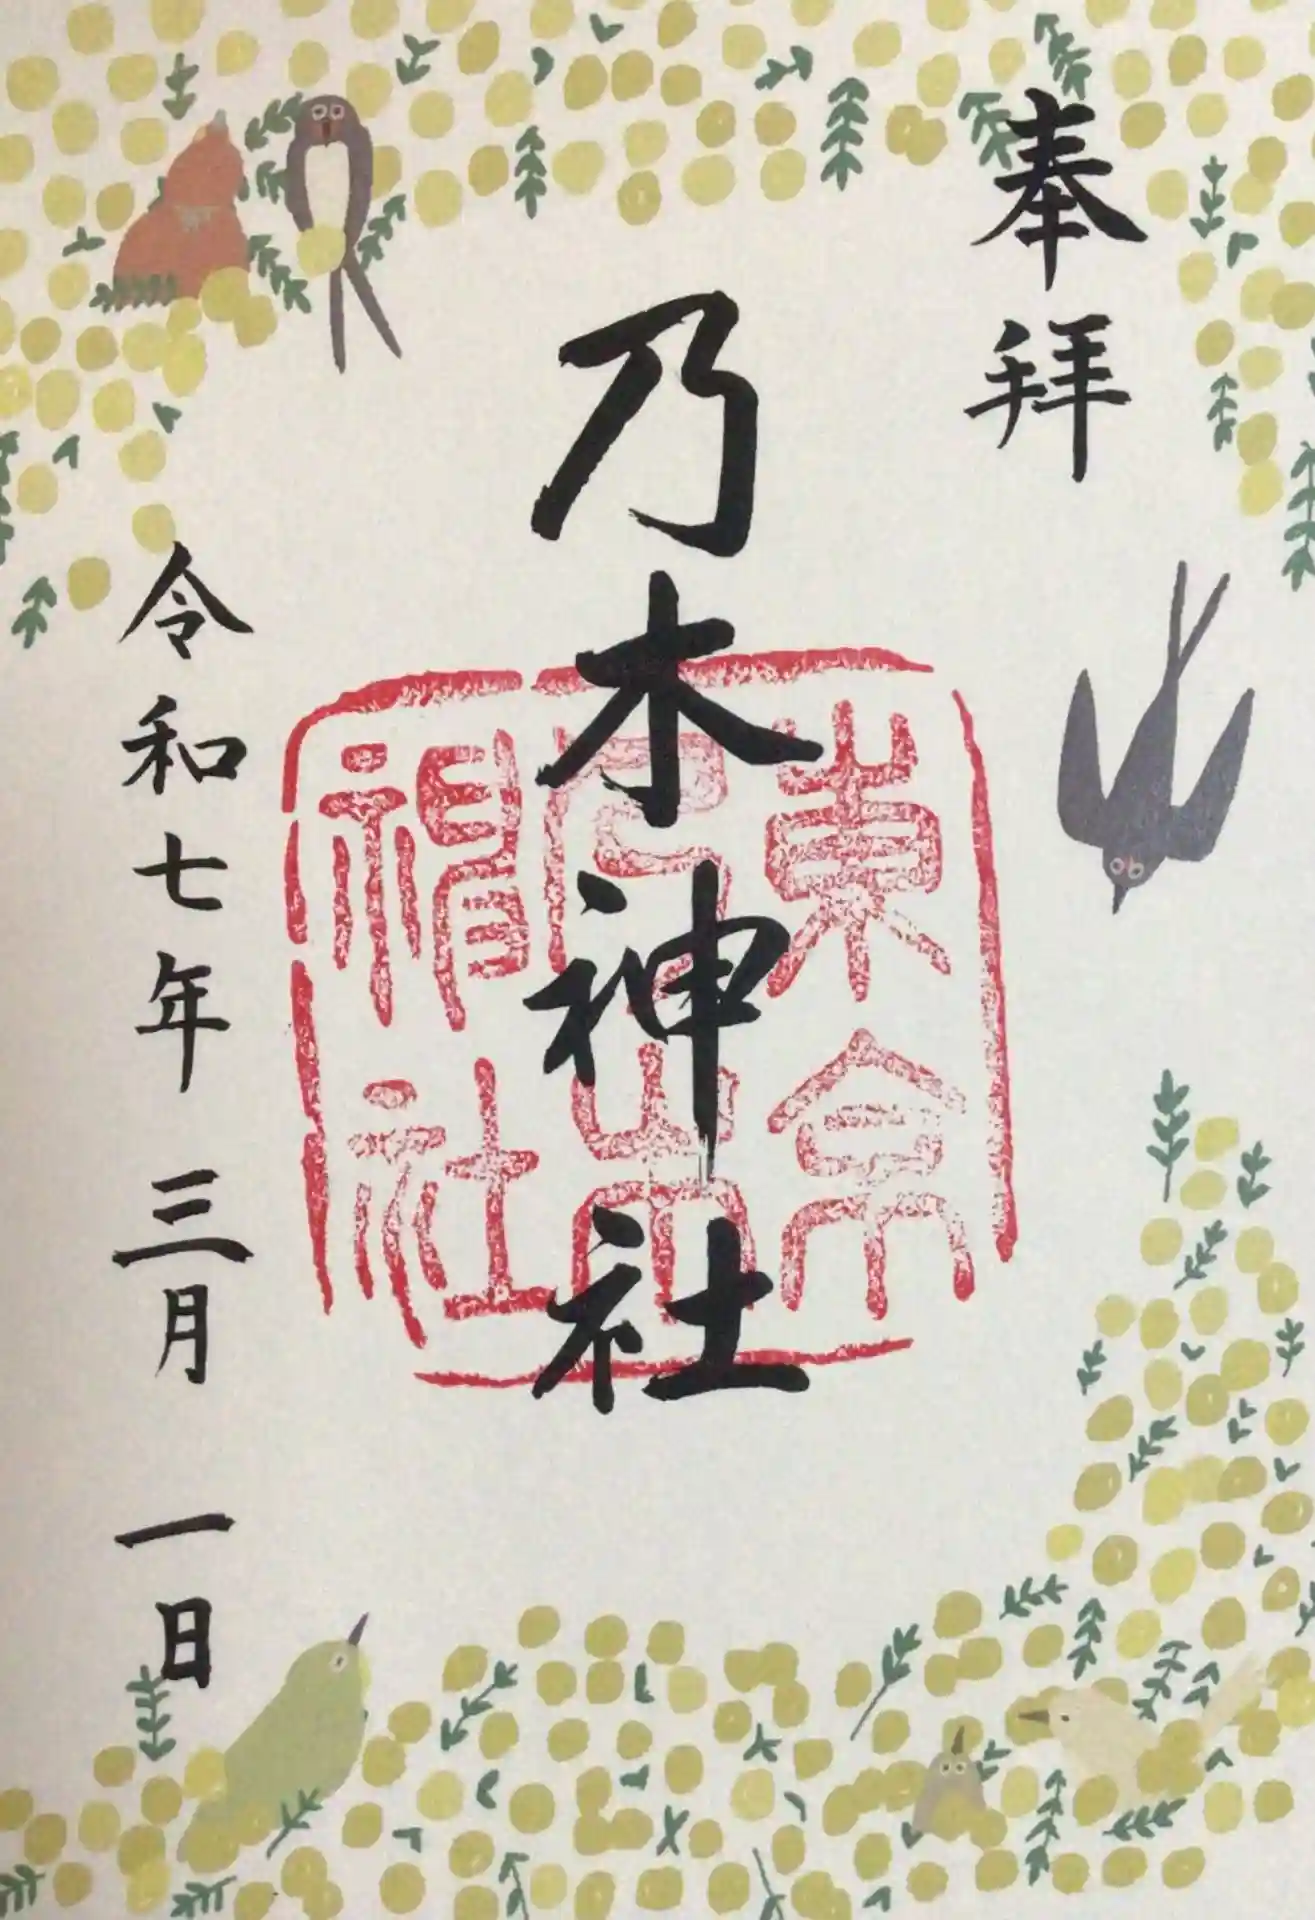 奉拝
乃木神社
東京
乃木神社
令和七年三月一日